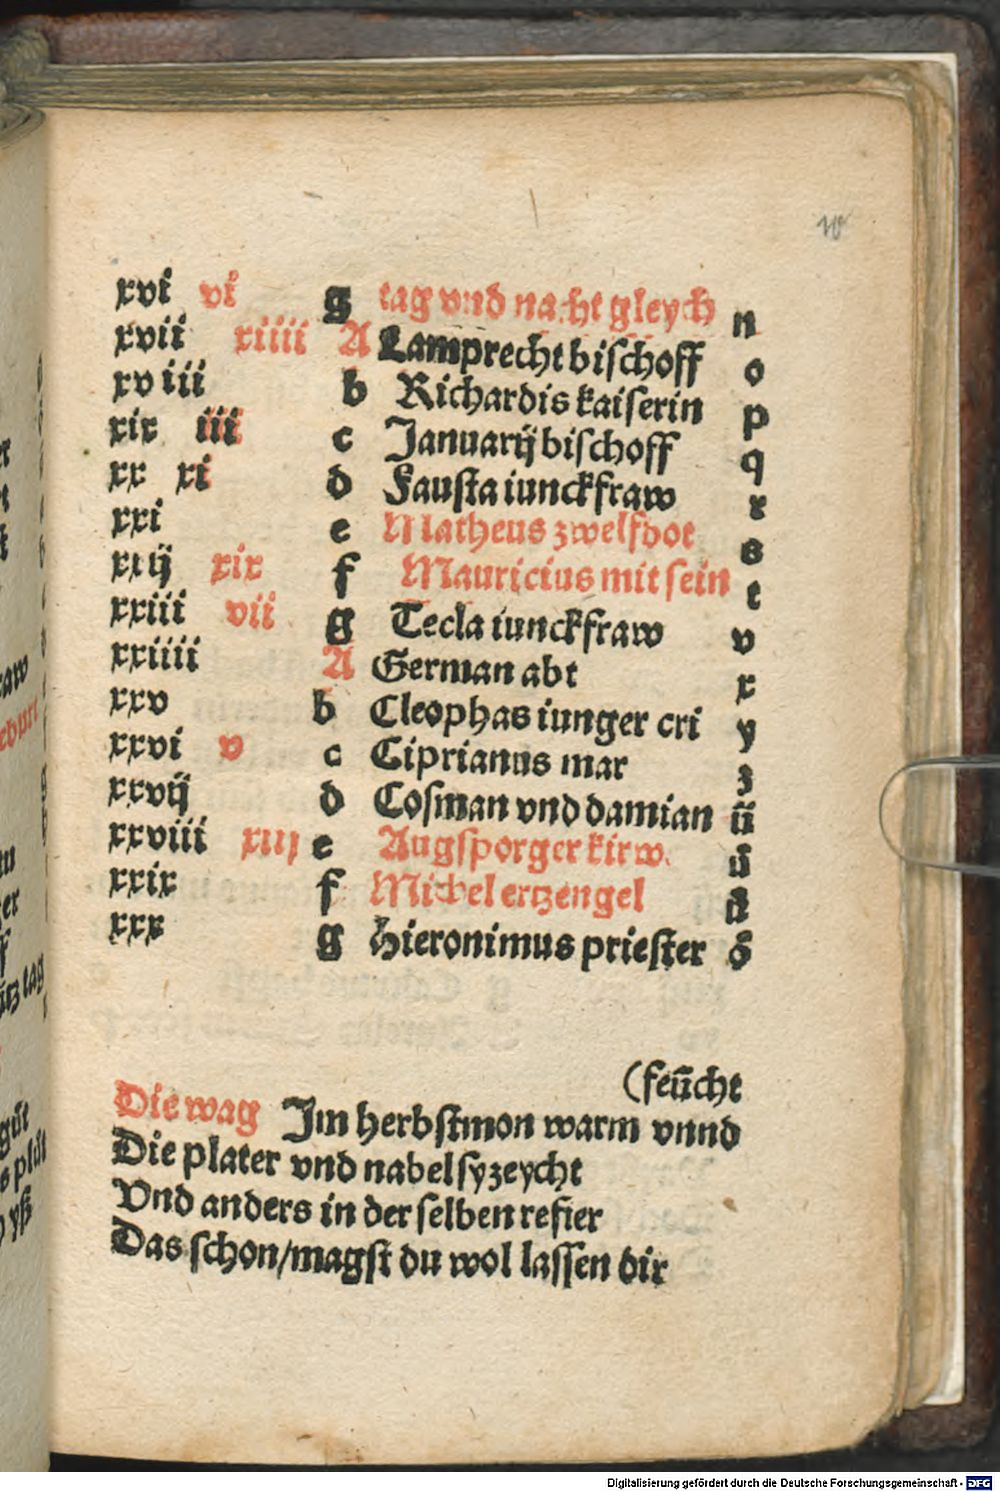 xvi vi g tag vnd nacht gleych n
xvii xiiii A Lamprecht bischoff o
xviii b Richardis kaiserin p
xix iii c Januarij bischoff q
xx xi d Fausta iunckfraw r
xxi e Matheus zwelfbot s
xxij xix f Mauricius mit sein t
xxiii vii g Tecla iunckfraw v
xxiiii A German abt x
xxv b Cleophas iunger cri y
xxvi v c Ciprianus mar z
xxvij d Cosman vnd damian ü
xxviii xiij e Augsporger kirw.
xxix f Michel ertzengel
xxx g Hieronimus priester ō
(feücht
Die wag Im herbstmon warm vnnd
Die plater vnd nabel sy zeycht
Vnd anders in der selben refier
Das schon/magst du wol lassen dir
Digitalisierung gefördert durch die Deutsche Forschungsgemeinschaft - DFG